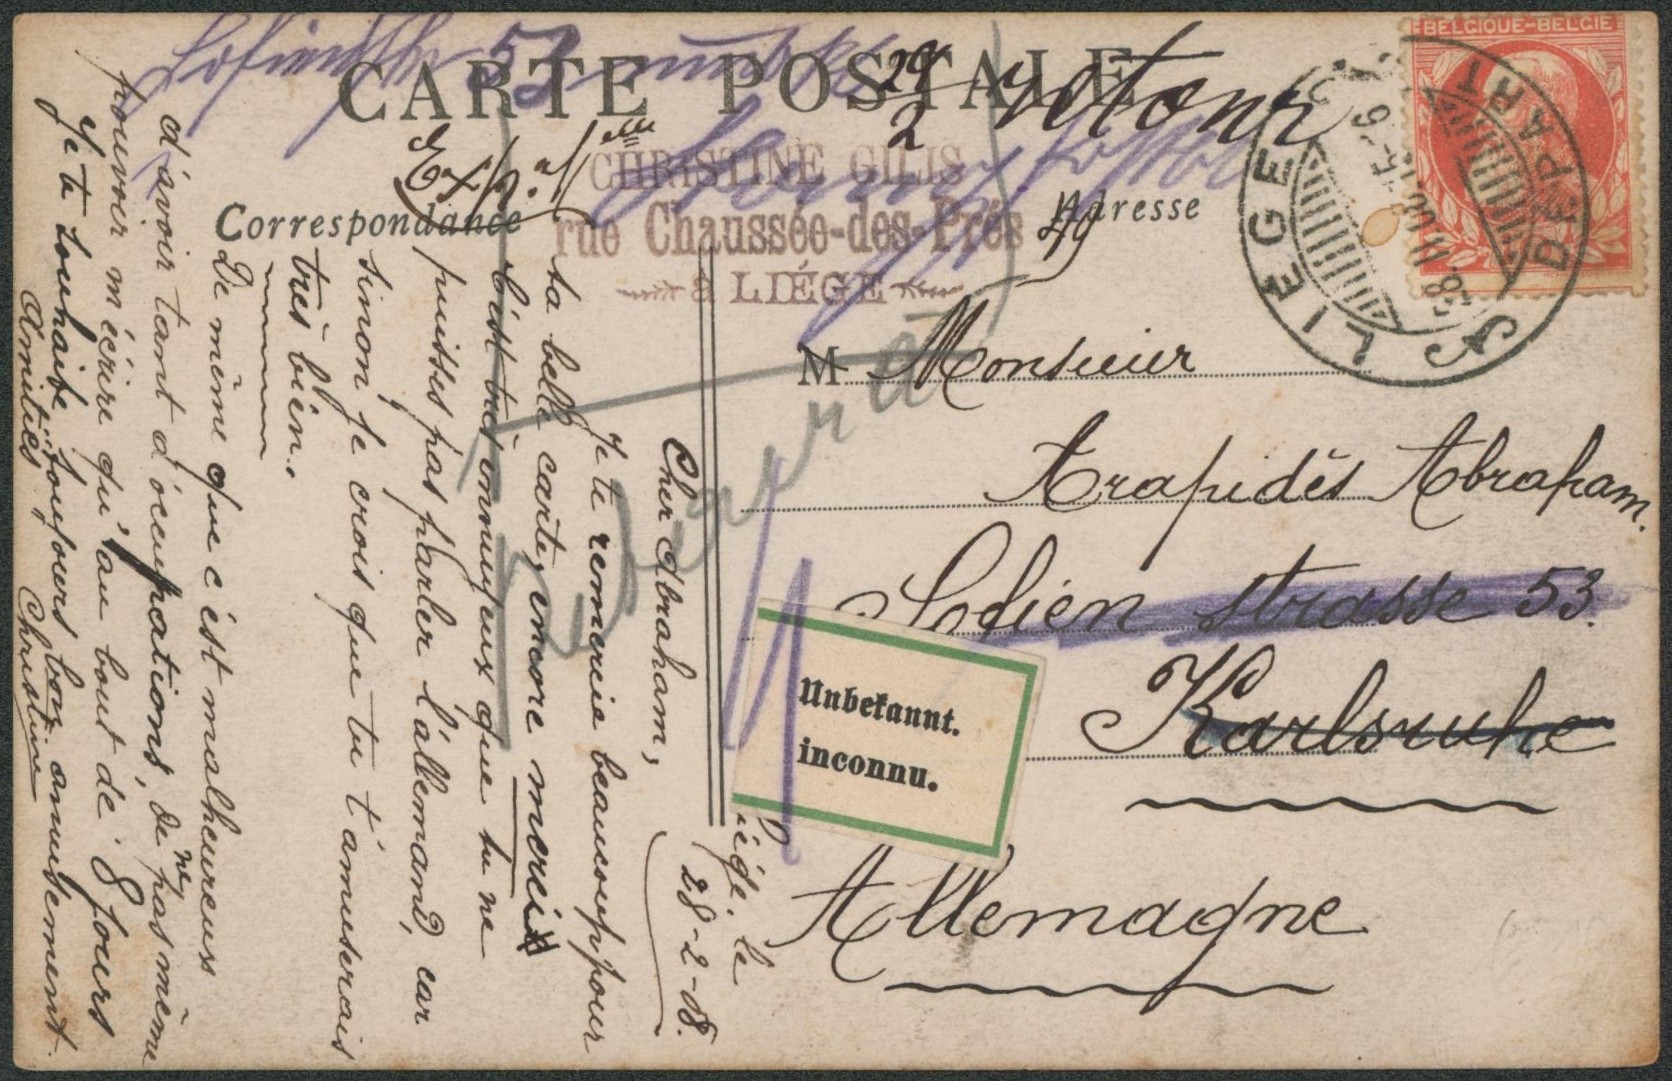 CARTE POSTALE
29
2
retour
Exp. Mlle
CHRISTINE GILIS
rue Chaussée-des-Prés
à LIÉGE
Correspondance
Adresse
BELGIQUE-BELGIE
LIEGE
DEPART
M Monsieur
Arapidès Abraham.
Sofien strasse 53.
Karlsruhe
Allemagne
Unbekannt.
inconnu.
Liége. le
28-2-08.
Cher Abraham,
Je te remercie beaucoup pour
ta belle carte, encore merci
C'est très ennuyeux que tu ne
puisses pas parler l'allemand, car
sinon, je crois que tu t'amuserais
très bien.
De même que c'est malheureux
d'avoir tant d'occupations, de ne pas même
pouvoir m'écrire qu'au bout de 8 jours
Je te souhaite toujours bon amusement.
Amitiés
Christine